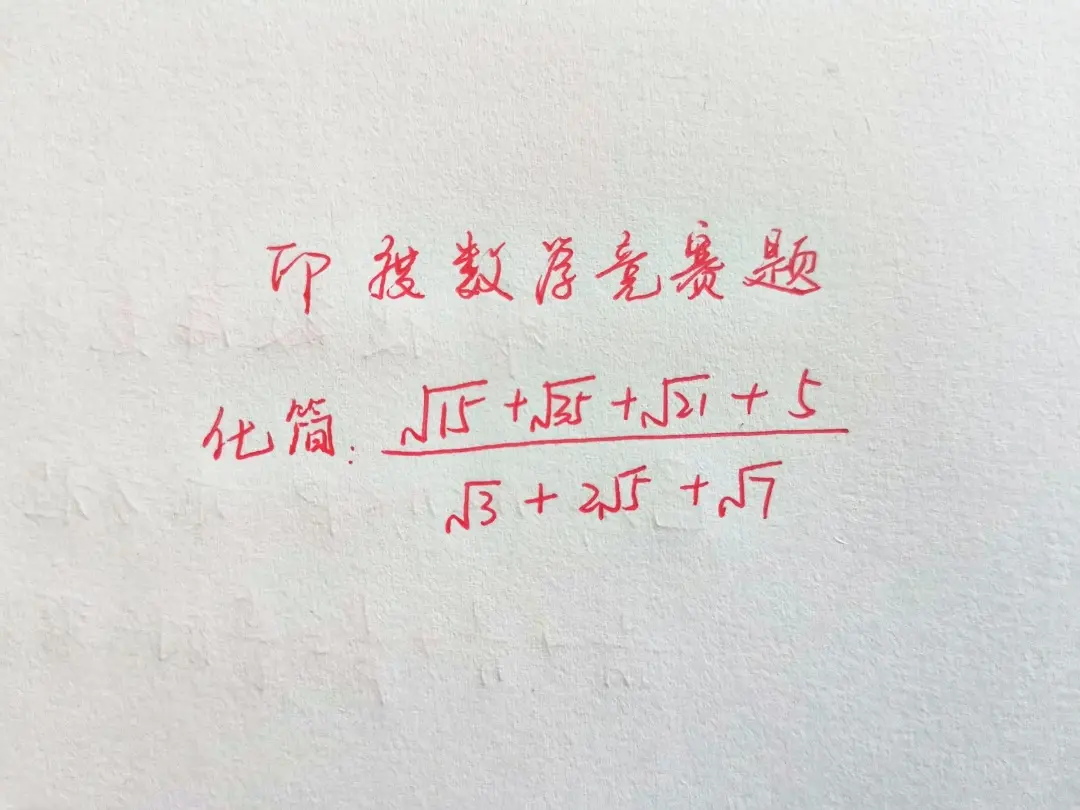 印度数学竞赛题
化简: (√15 + √35 + √21 + 5) / (√3 + 2√5 + √7)